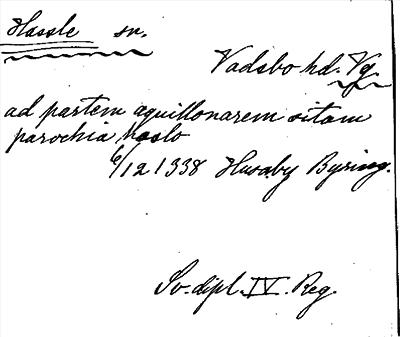 Hassle sn.
Vadsbo hd. Vg.
ad partem aquillonarem sitam
parochia haslo
6/12 1338 Husaby Byring.
Sv. dipl. IV. Reg.